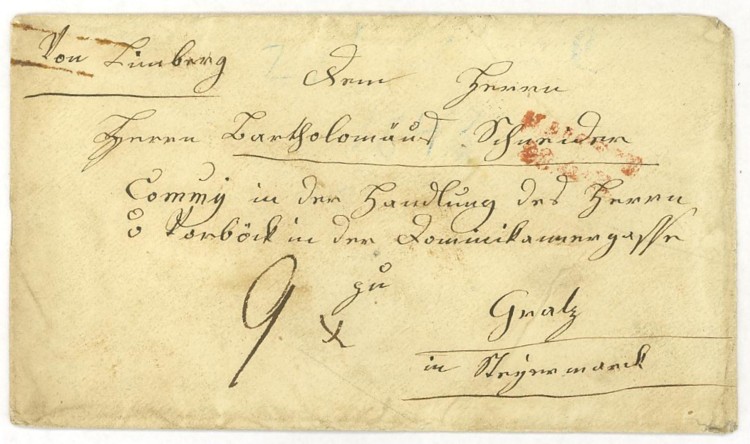 Von Limberg
Dem Herrn
Herrn Bartholomäus Schneider
Commis in der Handlung des Herrn
v Vorböck in der Dominikanergasse
zu
9 x
Gratz
in Steyermarck